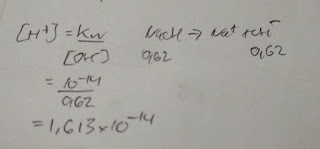 [H+] = Kw NaOH → Na+ + OH-
[OH-] 0,62 0,62
= 10-14
0,62
= 1,613×10-14